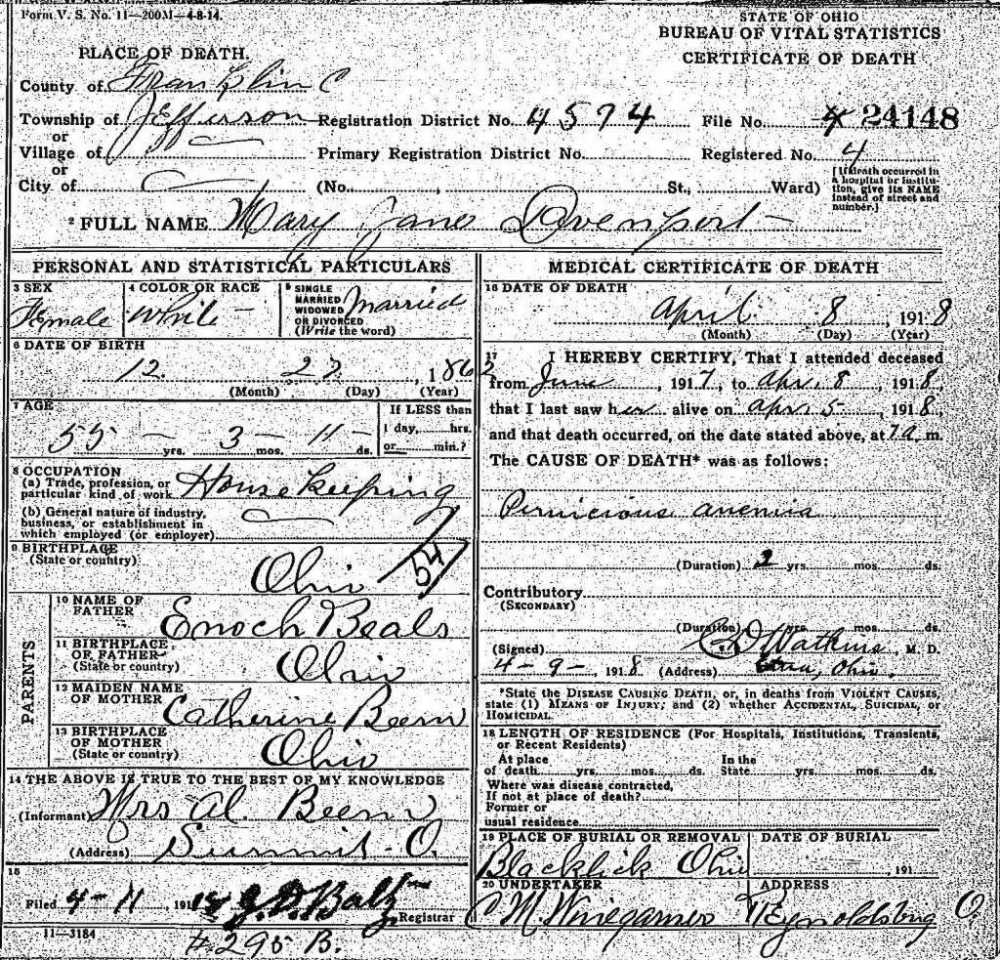 Form V. S. No. 11—200M—4-8-14.
STATE OF OHIO
BUREAU OF VITAL STATISTICS
CERTIFICATE OF DEATH
PLACE OF DEATH.
County of Franklin C
Township of Jefferson Registration District No. 4574 File No. 24148
or
Village of Primary Registration District No. Registered No. 4
or
City of (No. , St., Ward) [If death occurred in a hospital or institution, give its NAME instead of street and number.]
2 FULL NAME Mary Jane Davenport
PERSONAL AND STATISTICAL PARTICULARS
3 SEX Female
4 COLOR OR RACE White
5 SINGLE MARRIED WIDOWED OR DIVORCED (Write the word) Married
6 DATE OF BIRTH
12 27, 1862
(Month) (Day) (Year)
7 AGE
55 yrs. 3 mos. 11 ds.
If LESS than 1 day, hrs. or min.?
8 OCCUPATION
(a) Trade, profession, or particular kind of work House Keeping
(b) General nature of industry, business, or establishment in which employed (or employer)
9 BIRTHPLACE
(State or country) Ohio
54
PARENTS
10 NAME OF FATHER Enoch Beals
11 BIRTHPLACE OF FATHER (State or country) Ohio
12 MAIDEN NAME OF MOTHER Catherine Beem
13 BIRTHPLACE OF MOTHER (State or country) Ohio
14 THE ABOVE IS TRUE TO THE BEST OF MY KNOWLEDGE
(Informant) Mrs Al. Beem
(Address) Summit O.
15
Filed 4-11 1918 Registrar
11—3184
# 295 B.
MEDICAL CERTIFICATE OF DEATH
16 DATE OF DEATH
April 8, 1918
(Month) (Day) (Year)
17 I HEREBY CERTIFY, That I attended deceased
from June, 1917, to Apr. 8, 1918,
that I last saw her alive on Apr. 5, 1918,
and that death occurred, on the date stated above, at 7 a. m.
The CAUSE OF DEATH* was as follows:
Pernicious anemia
(Duration) 2 yrs. mos. ds.
Contributory
(SECONDARY)
(Duration) yrs. mos. ds.
(Signed) Watkins, M. D.
4-9-, 1918 (Address) Ohio.
*State the DISEASE CAUSING DEATH, or, in deaths from VIOLENT CAUSES,
state (1) MEANS OF INJURY; and (2) whether ACCIDENTAL, SUICIDAL, or
HOMICIDAL.
18 LENGTH OF RESIDENCE (For Hospitals, Institutions, Transients, or Recent Residents)
At place of death yrs. mos. ds. In the State yrs. mos. ds.
Where was disease contracted,
If not at place of death?
Former or
usual residence
19 PLACE OF BURIAL OR REMOVAL Blacklick Ohio
DATE OF BURIAL , 191
20 UNDERTAKER C M Winegarner
ADDRESS Reynoldsburg O.